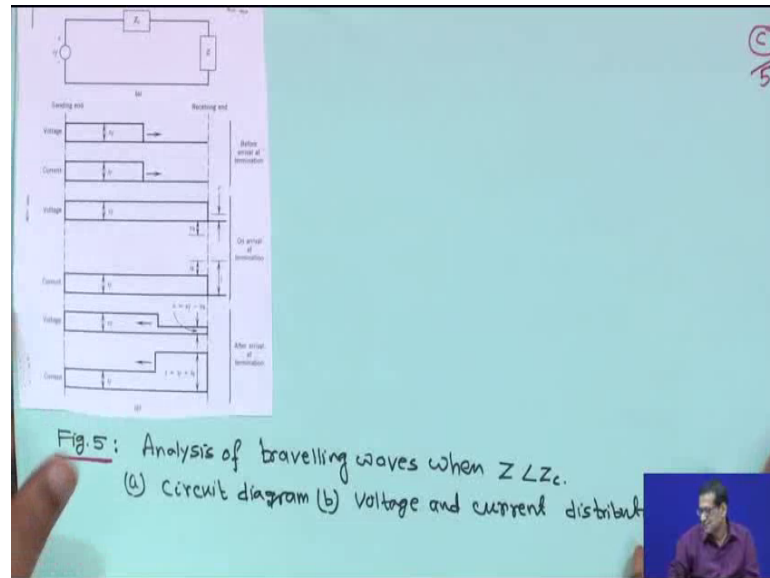 C
5
(a)
Sending end Receiving end
Voltage
Before
arrival at
termination
Current
Voltage
On arrival
at
termination
Current
Voltage
After arrival
at
termination
Current
Fig. 5: Analysis of travelling waves when Z ∠ Zc.
(a) Circuit diagram (b) Voltage and current distribut